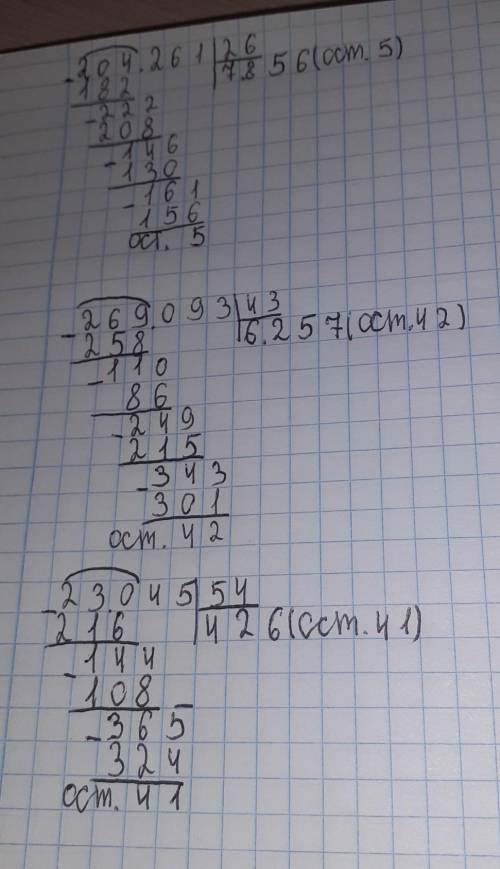 204.261 26
-182 7856 (ост. 5)
-222
208
-146
130
-161
156
ост. 5
-269.093 43
258 6.257 (ост. 42)
-110
86
-249
215
-343
301
ост. 42
-23.045 54
216 426 (ост. 41)
-144
108
-365
324
ост. 41